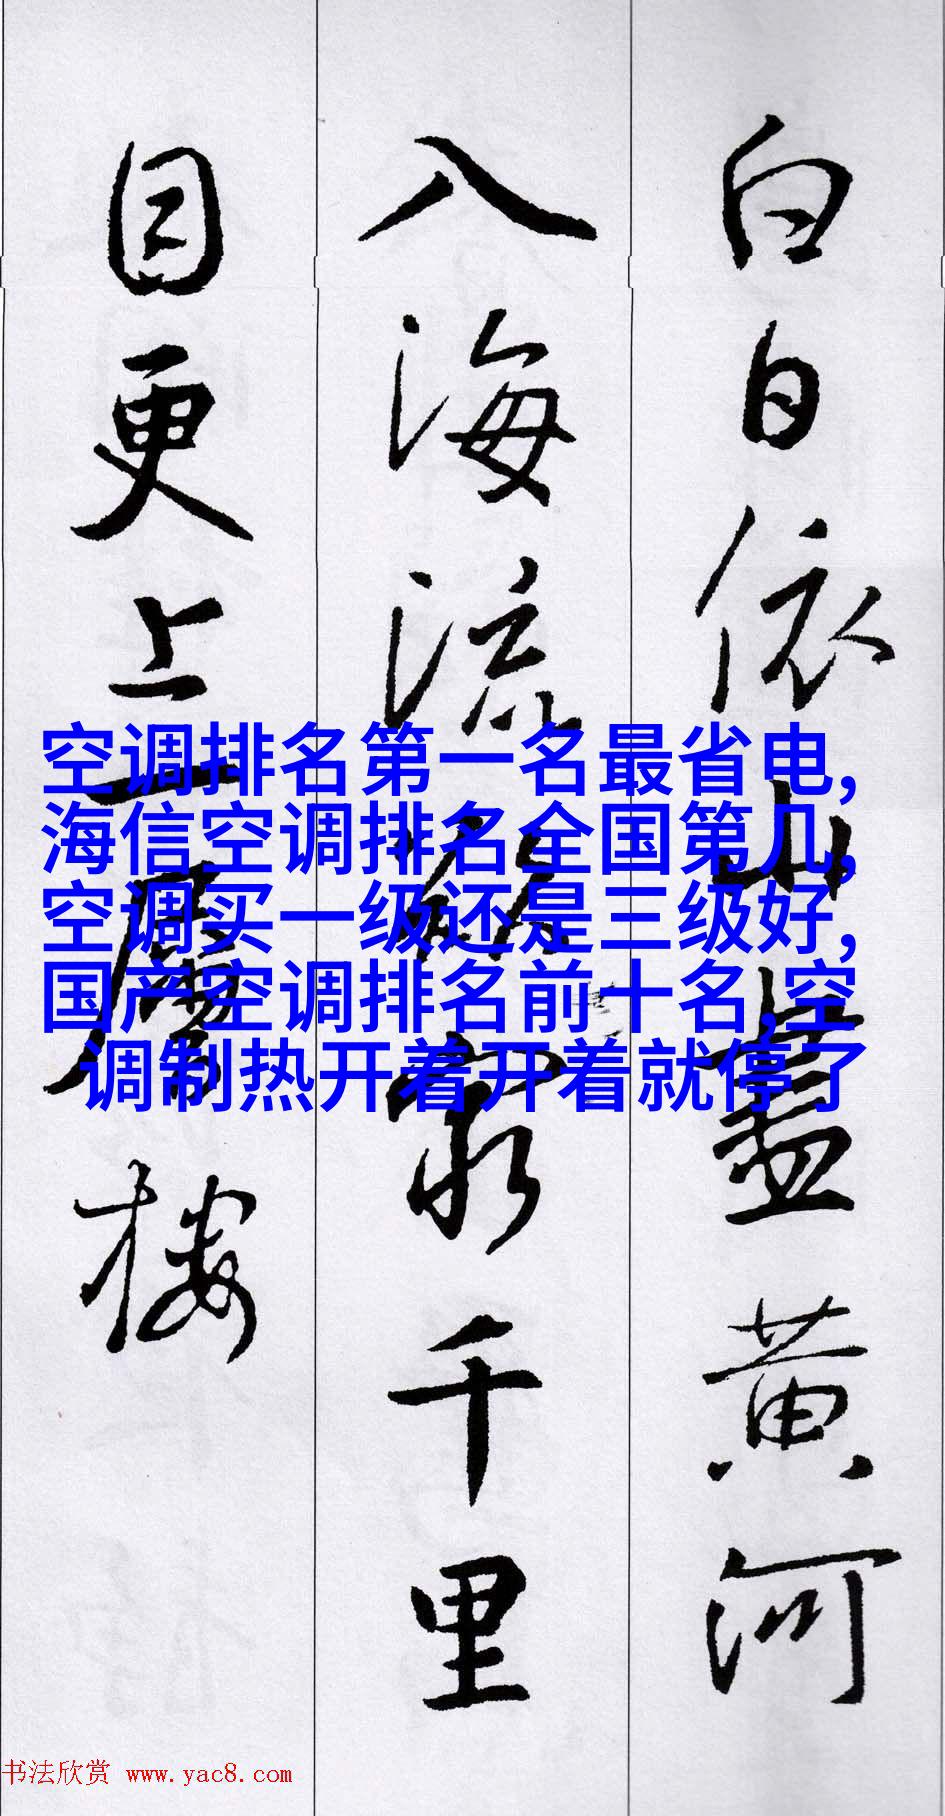 白日依山盡黄河
入海流欲窮千里
目更上一層樓
空调排名第一名最省电,
海信空调排名全国第几,
空调买一级还是三级好,
国产空调排名前十名,空
调制热开着开着就停了
书法欣赏 www.yac8.com